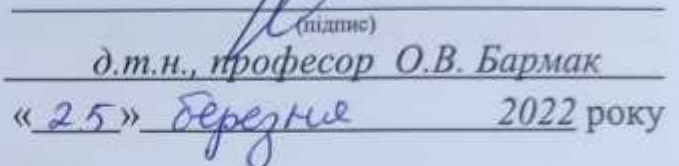 (підпис)
д.т.н., професор О.В. Бармак
«25» березня 2022 року